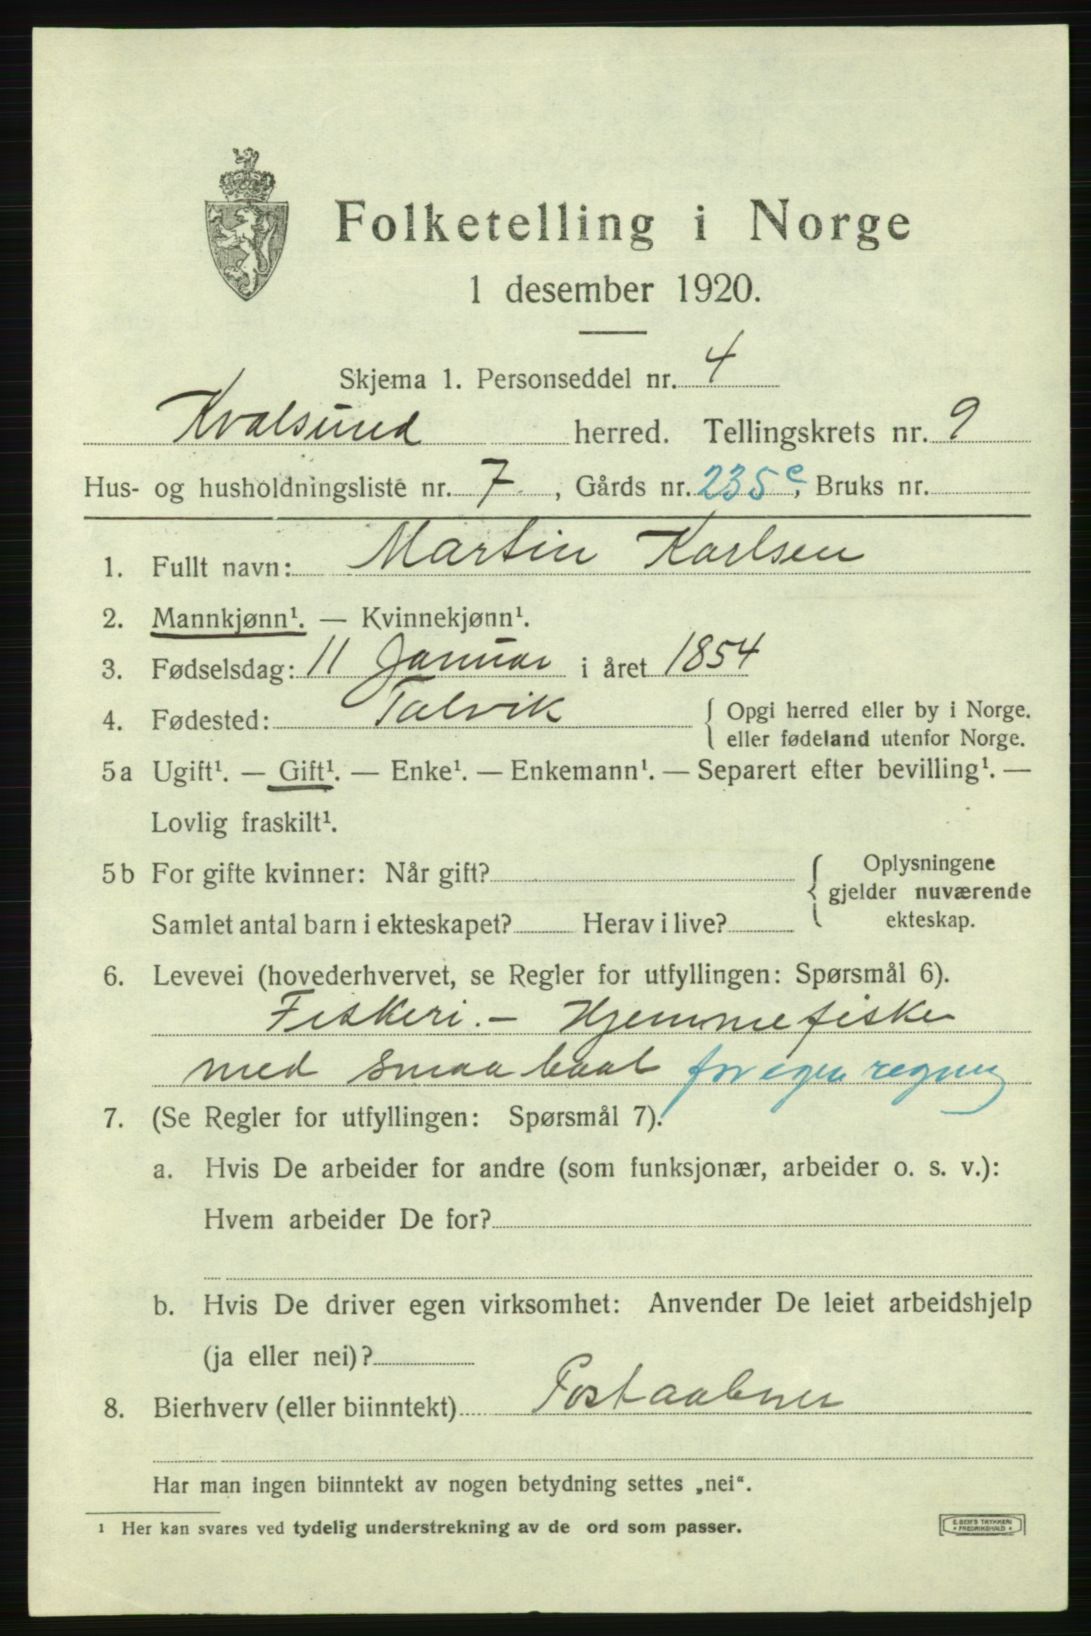 Folketelling i Norge
1 desember 1920.
Skjema 1. Personseddel nr. 4
Kvalsund herred. Tellingskrets nr. 9
Hus- og husholdningsliste nr. 7, Gårds nr. 235 c, Bruks nr.
1. Fullt navn: Martin Karlsen
2. Mannkjønn¹. — Kvinnekjønn¹.
3. Fødselsdag: 11 Januar i året 1854
4. Fødested: Talvik { Opgi herred eller by i Norge.
eller fødeland utenfor Norge.
5a Ugift¹. — Gift¹. — Enke¹. — Enkemann¹. — Separert efter bevilling¹. —
Lovlig fraskilt¹.
5b For gifte kvinner: Når gift? { Oplysningene
gjelder nuværende
Samlet antal barn i ekteskapet? Herav i live? ekteskap.
6. Levevei (hovederhvervet, se Regler for utfyllingen: Spørsmål 6).
Fiskeri. – Hjemmefiske
med smaa baat for egen regning
7. (Se Regler for utfyllingen: Spørsmål 7).
a. Hvis De arbeider for andre (som funksjonær, arbeider o. s. v.):
Hvem arbeider De for?
b. Hvis De driver egen virksomhet: Anvender De leiet arbeidshjelp
(ja eller nei)?
8. Bierhverv (eller biinntekt) Postaabner
Har man ingen biinntekt av nogen betydning settes „nei“.
¹ Her kan svares ved tydelig understrekning av de ord som passer.
E. SEM'S TRYKKERI
• FREDRIKSHALD •